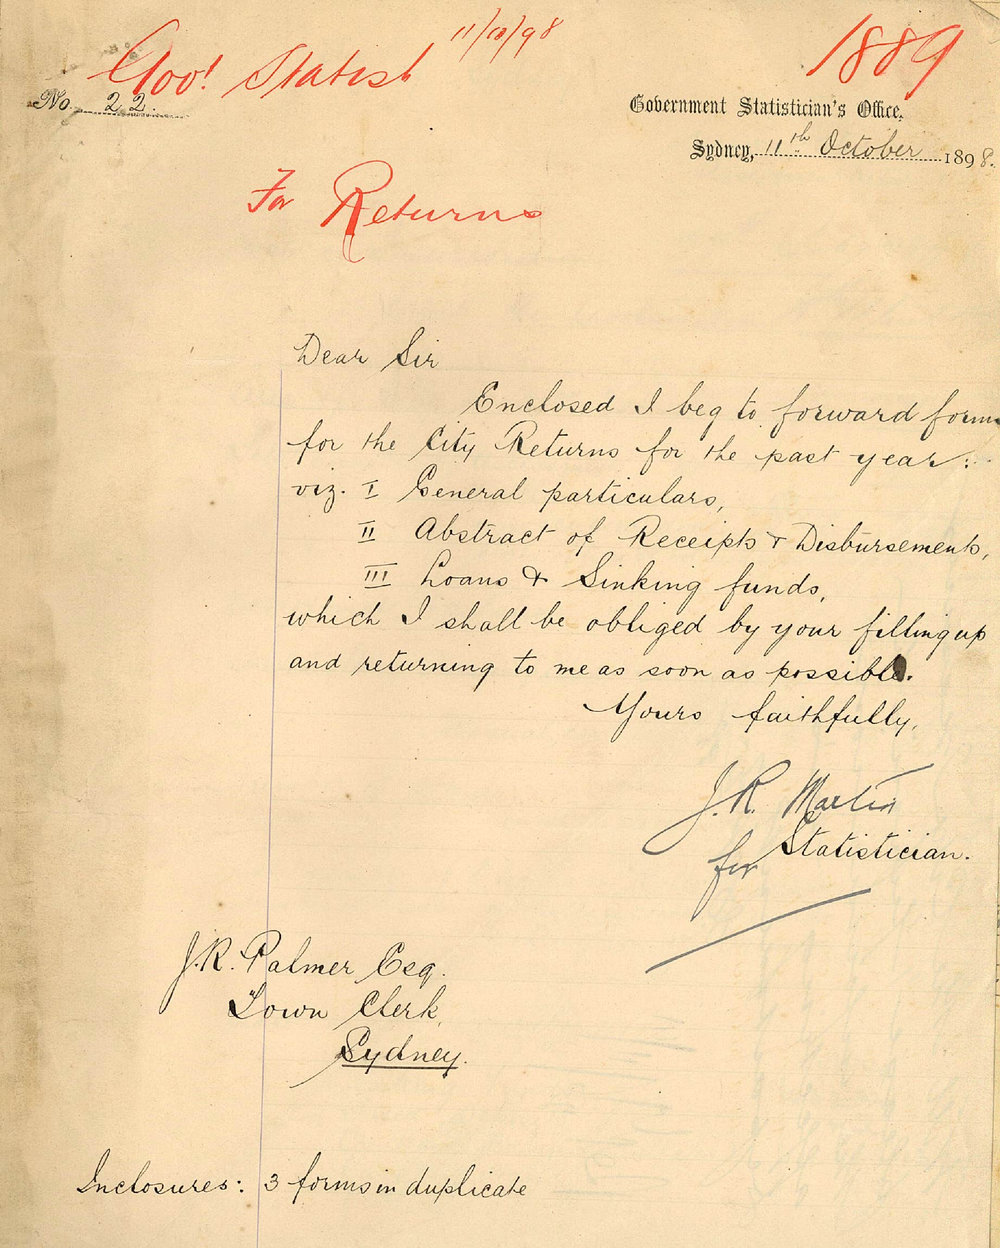 Gov! Statist 11/10/98
1889
No. 22.
Government Statistician's Office,
Sydney, 11th October 1898.
For Returns
Dear Sir
Enclosed I beg to forward forms
for the City Returns for the past year:
viz. I General particulars,
II Abstract of Receipts & Disbursements,
III Loans & Sinking funds,
which I shall be obliged by your filling up
and returning to me as soon as possible.
Yours faithfully,
J. R. Martin
for Statistician.
J. R. Palmer Esq.
Town Clerk,
Sydney.
Inclosures: 3 forms in duplicate